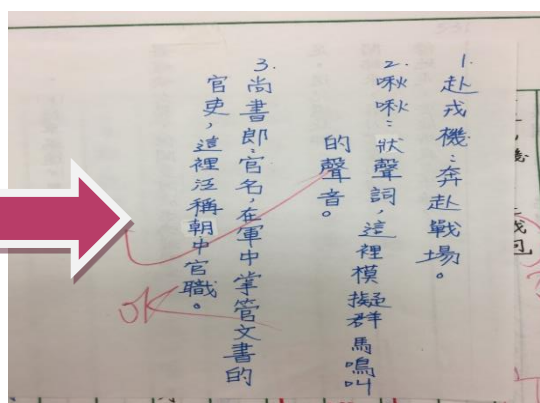 1.赴戎機:奔赴戰場。
2.啾啾:狀聲詞,這裡模擬群馬鳴叫
的聲音。
3.尚書郎:官名,在軍中掌管文書的
官吏,這裡泛稱朝中官職。
OK